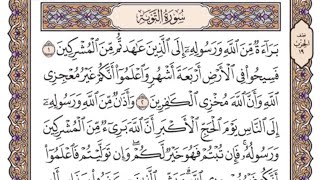 سُورَةُ التَّوۡبَةِ
بَرَآءَةٌ مِّنَ ٱللَّهِ وَرَسُولِهِۦٓ إِلَى ٱلَّذِينَ عَٰهَدتُّم مِّنَ ٱلۡمُشۡرِكِينَ ١
فَسِيحُواْ فِي ٱلۡأَرۡضِ أَرۡبَعَةَ أَشۡهُرٖ وَٱعۡلَمُوٓاْ أَنَّكُمۡ غَيۡرُ مُعۡجِزِي
ٱللَّهِ وَأَنَّ ٱللَّهَ مُخۡزِي ٱلۡكَٰفِرِينَ ٢ وَأَذَٰنٞ مِّنَ ٱللَّهِ وَرَسُولِهِۦٓ
إِلَى ٱلنَّاسِ يَوۡمَ ٱلۡحَجِّ ٱلۡأَكۡبَرِ أَنَّ ٱللَّهَ بَرِيٓءٞ مِّنَ ٱلۡمُشۡرِكِينَ
وَرَسُولُهُۥۚ فَإِن تُبۡتُمۡ فَهُوَ خَيۡرٞ لَّكُمۡۖ وَإِن تَوَلَّيۡتُمۡ فَٱعۡلَمُوٓاْ